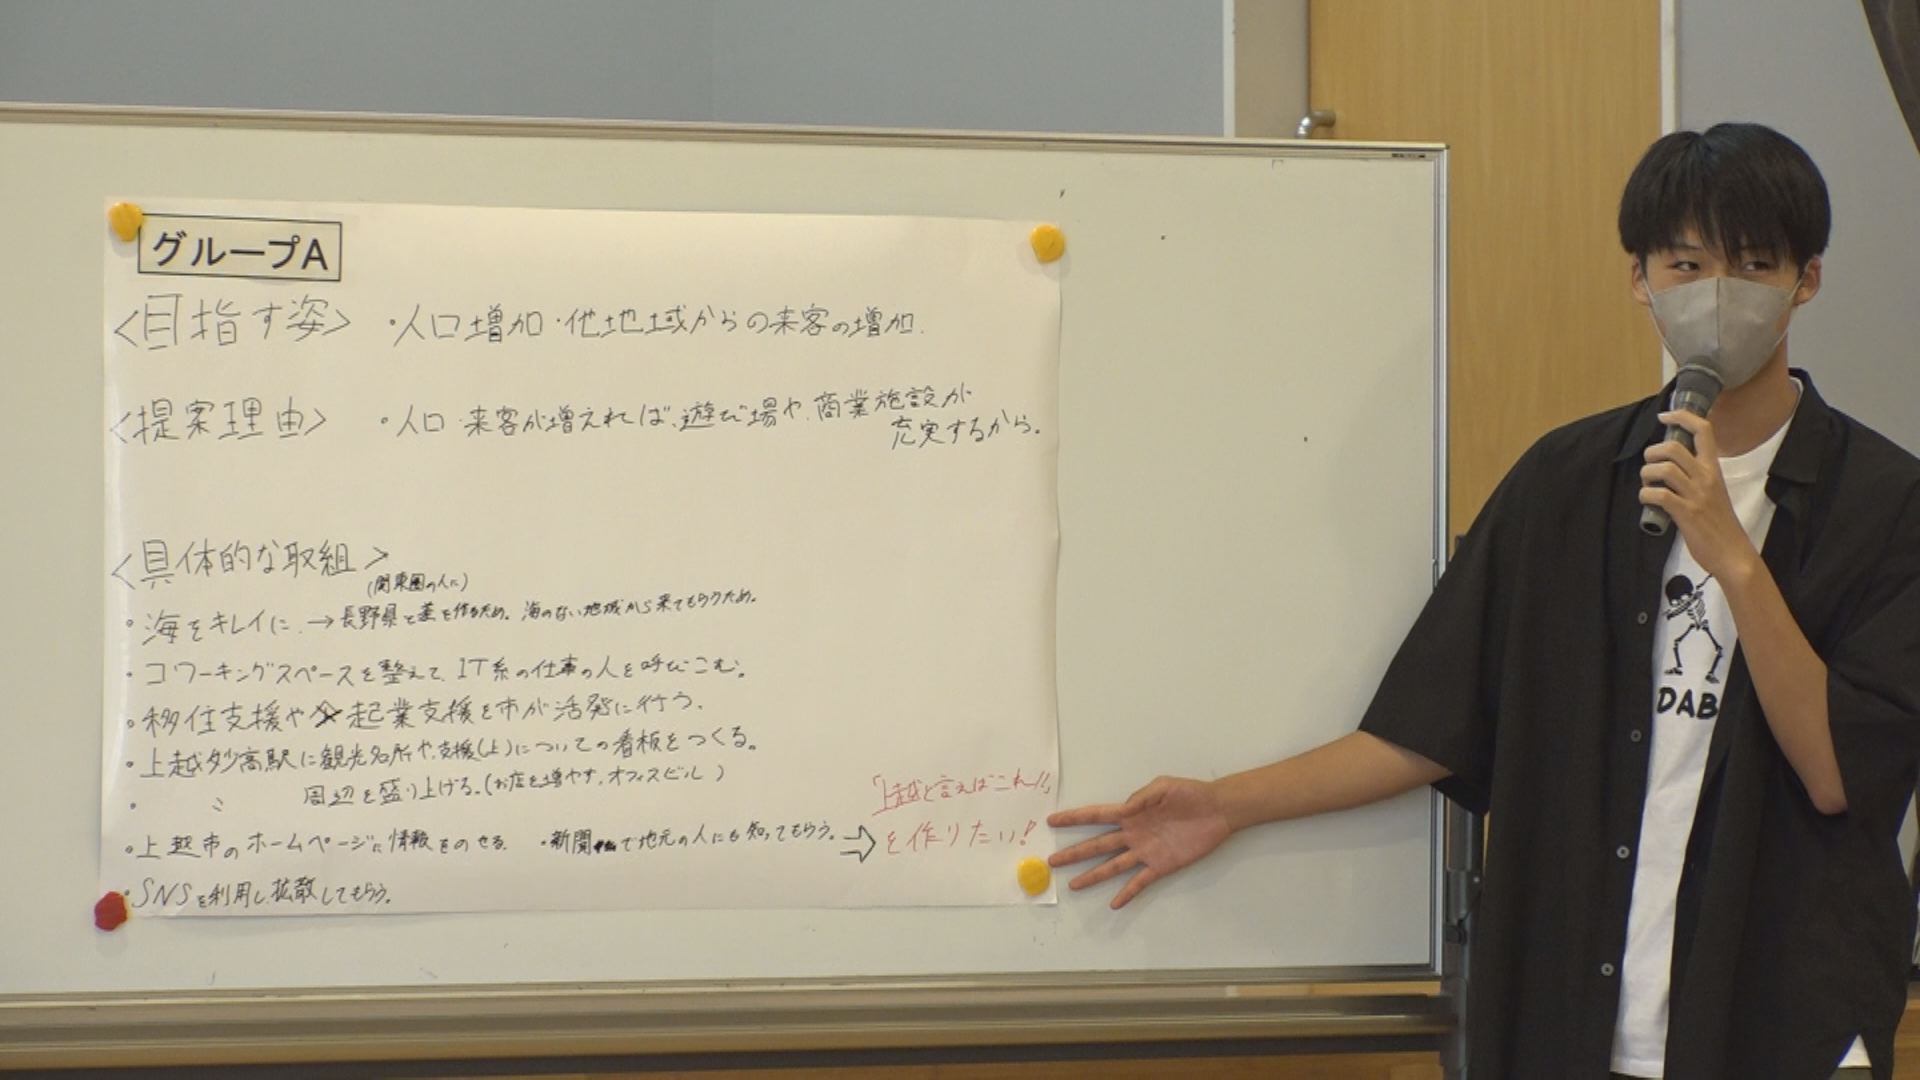 グループA
<目指す姿> ・人口増加・他地域からの来客の増加.
<提案理由> ・人口・来客が増えれば、遊び場や、商業施設が
充実するから。
<具体的な取組>
(関東圏の人に)
・海をキレイに. →長野県と差を作るため。海のない地域から来てもらうため。
・コワーキングスペースを整えて、IT系の仕事の人を呼びこむ。
・移住支援や起業支援を市が活発に行う。
・上越妙高駅に観光名所や支援(上)についての看板をつくる。
・ 〃 周辺を盛り上げる。(お店を増やす、オフィスビル)
「上越と言えばこれ!!」
・上越市のホームページに情報をのせる. ・新聞で地元の人にも知ってもらう。⇒を作りたい!
・SNSを利用し、拡散してもらう。
DAB